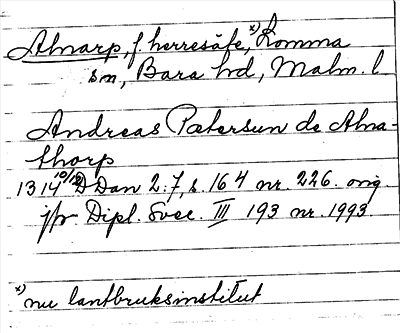 Alnarp, f. herresäte, x) Lomma
sn, Bara hd, Malm. l.
Andreas Pætersun de Alna-
thorp
1314 10/12 D Dan 2:7, s. 164 nr. 226. orig.
jfr Dipl. Svec. III 193 nr. 1993
x) nu lantbruksinstitut